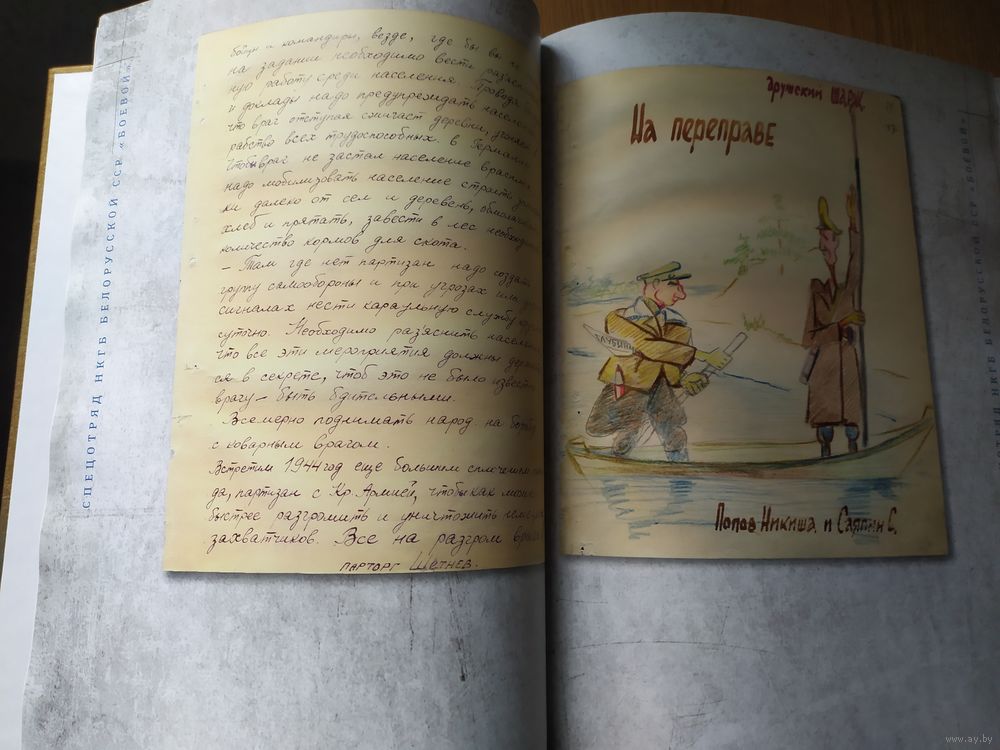 СПЕЦОТРЯД НКГБ БЕЛОРУССКОЙ ССР «БОЕВОЙ»
бойцы и командиры, везде, где бы вы
на задании необходимо вести
ную работу среди населения.
и доклады надо предупреждать
что враг отступая сжигает деревни,
рабство всех трудоспособных. в
Чтобы враг не застал население
надо мобилизовать население строить
ки далеко от сел и деревень,
хлеб и прятать, завести в лес
количество кормов для скота.
– Там где нет партизан надо
группу самообороны и при угрозах
сигналах нести караульную службу
суточно. Необходимо разяснить
что все эти мероприятия должны
ся в секрете, чтоб это не было
врагу – быть бдительными.
Всемерно поднимать народ на
с коварным врагом.
Встретим 1944 год еще большим
да, партизан с Кр. Армией, чтобы как
быстрее разгромить и уничтожить
захватчиков. Все на разгром
парторг Щетнев.
дружский ШАРЖ
На переправе
ГЛУБИНА
Попов Никиша и Саяпин С.
СПЕЦОТРЯД НКГБ БЕЛОРУССКОЙ ССР «БОЕВОЙ»
www.ay.by